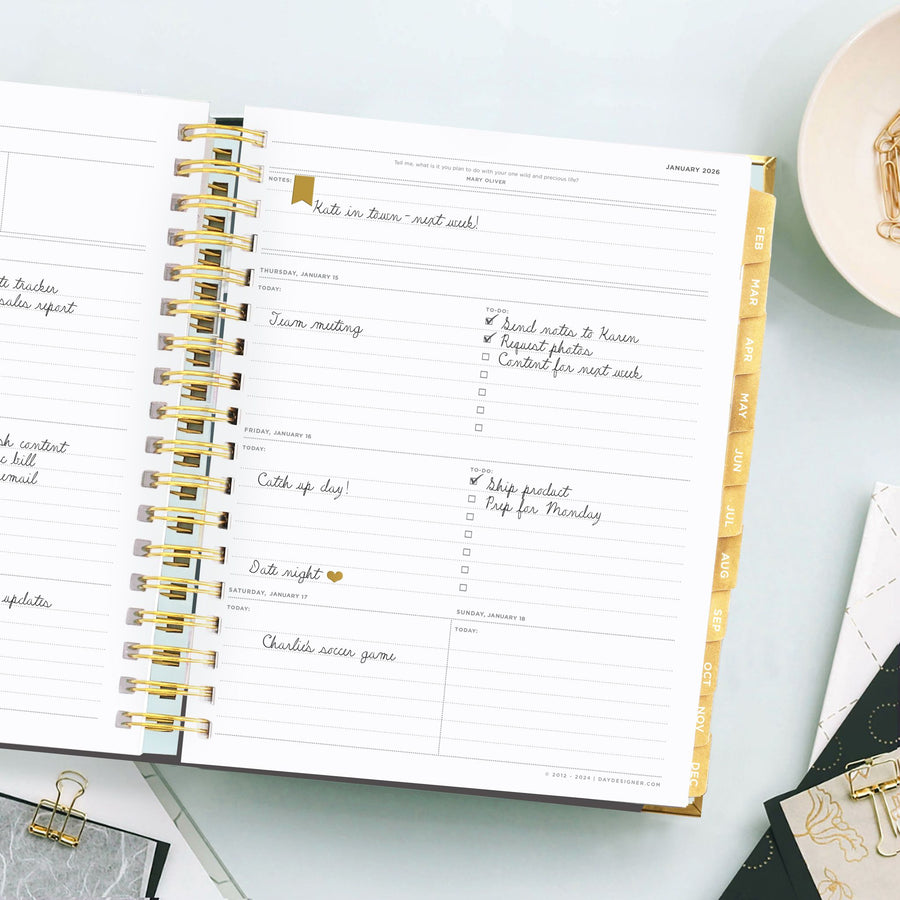 sales report
tracker
content
bill
email
updates
JANUARY 2026
Tell me, what is it you plan to do with your one wild and precious life?
MARY OLIVER
NOTES:
Kate in town - next week!
THURSDAY, JANUARY 15
TODAY:
Team meeting
TO-DO:
Send notes to Karen
Request photos
Content for next week
FRIDAY, JANUARY 16
TODAY:
Catch up day!
Date night
TO-DO:
Ship product
Prep for Monday
SATURDAY, JANUARY 17
TODAY:
Charlie's soccer game
SUNDAY, JANUARY 18
TODAY:
© 2012 - 2024 | DAYDESIGNER.COM
FEB
MAR
APR
MAY
JUN
JUL
AUG
SEP
OCT
NOV
DEC